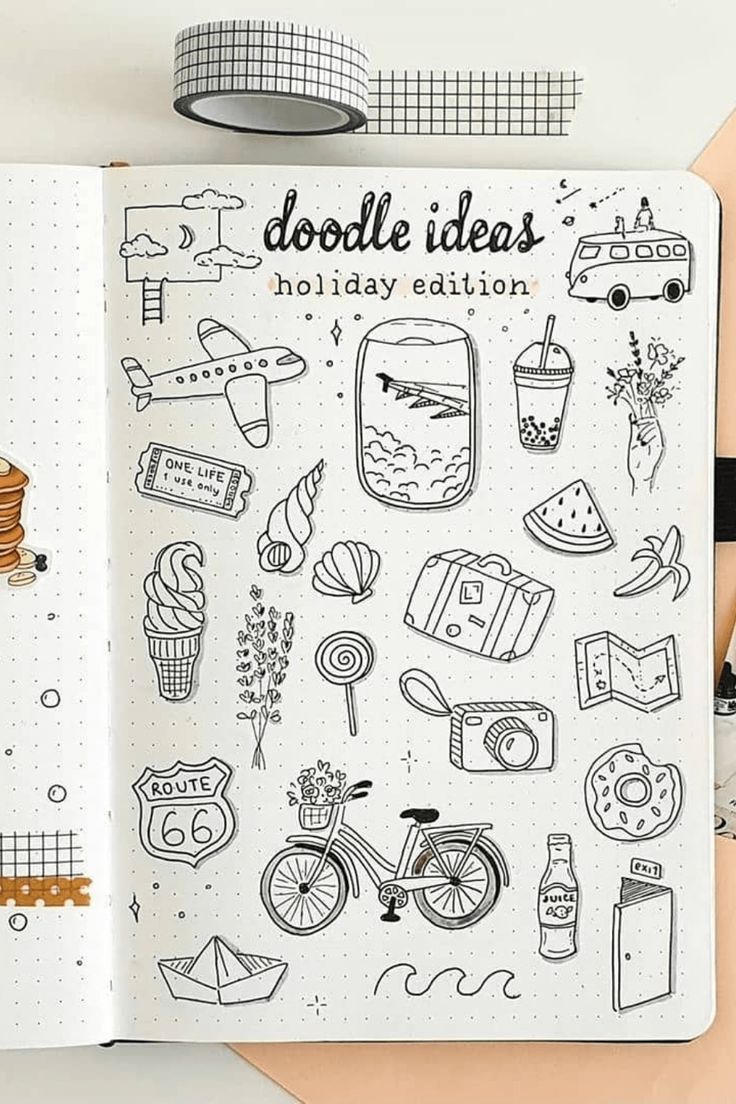 doodle ideas
holiday edition
ONE LIFE
1 use only
L
ROUTE
66
JUICE
exit